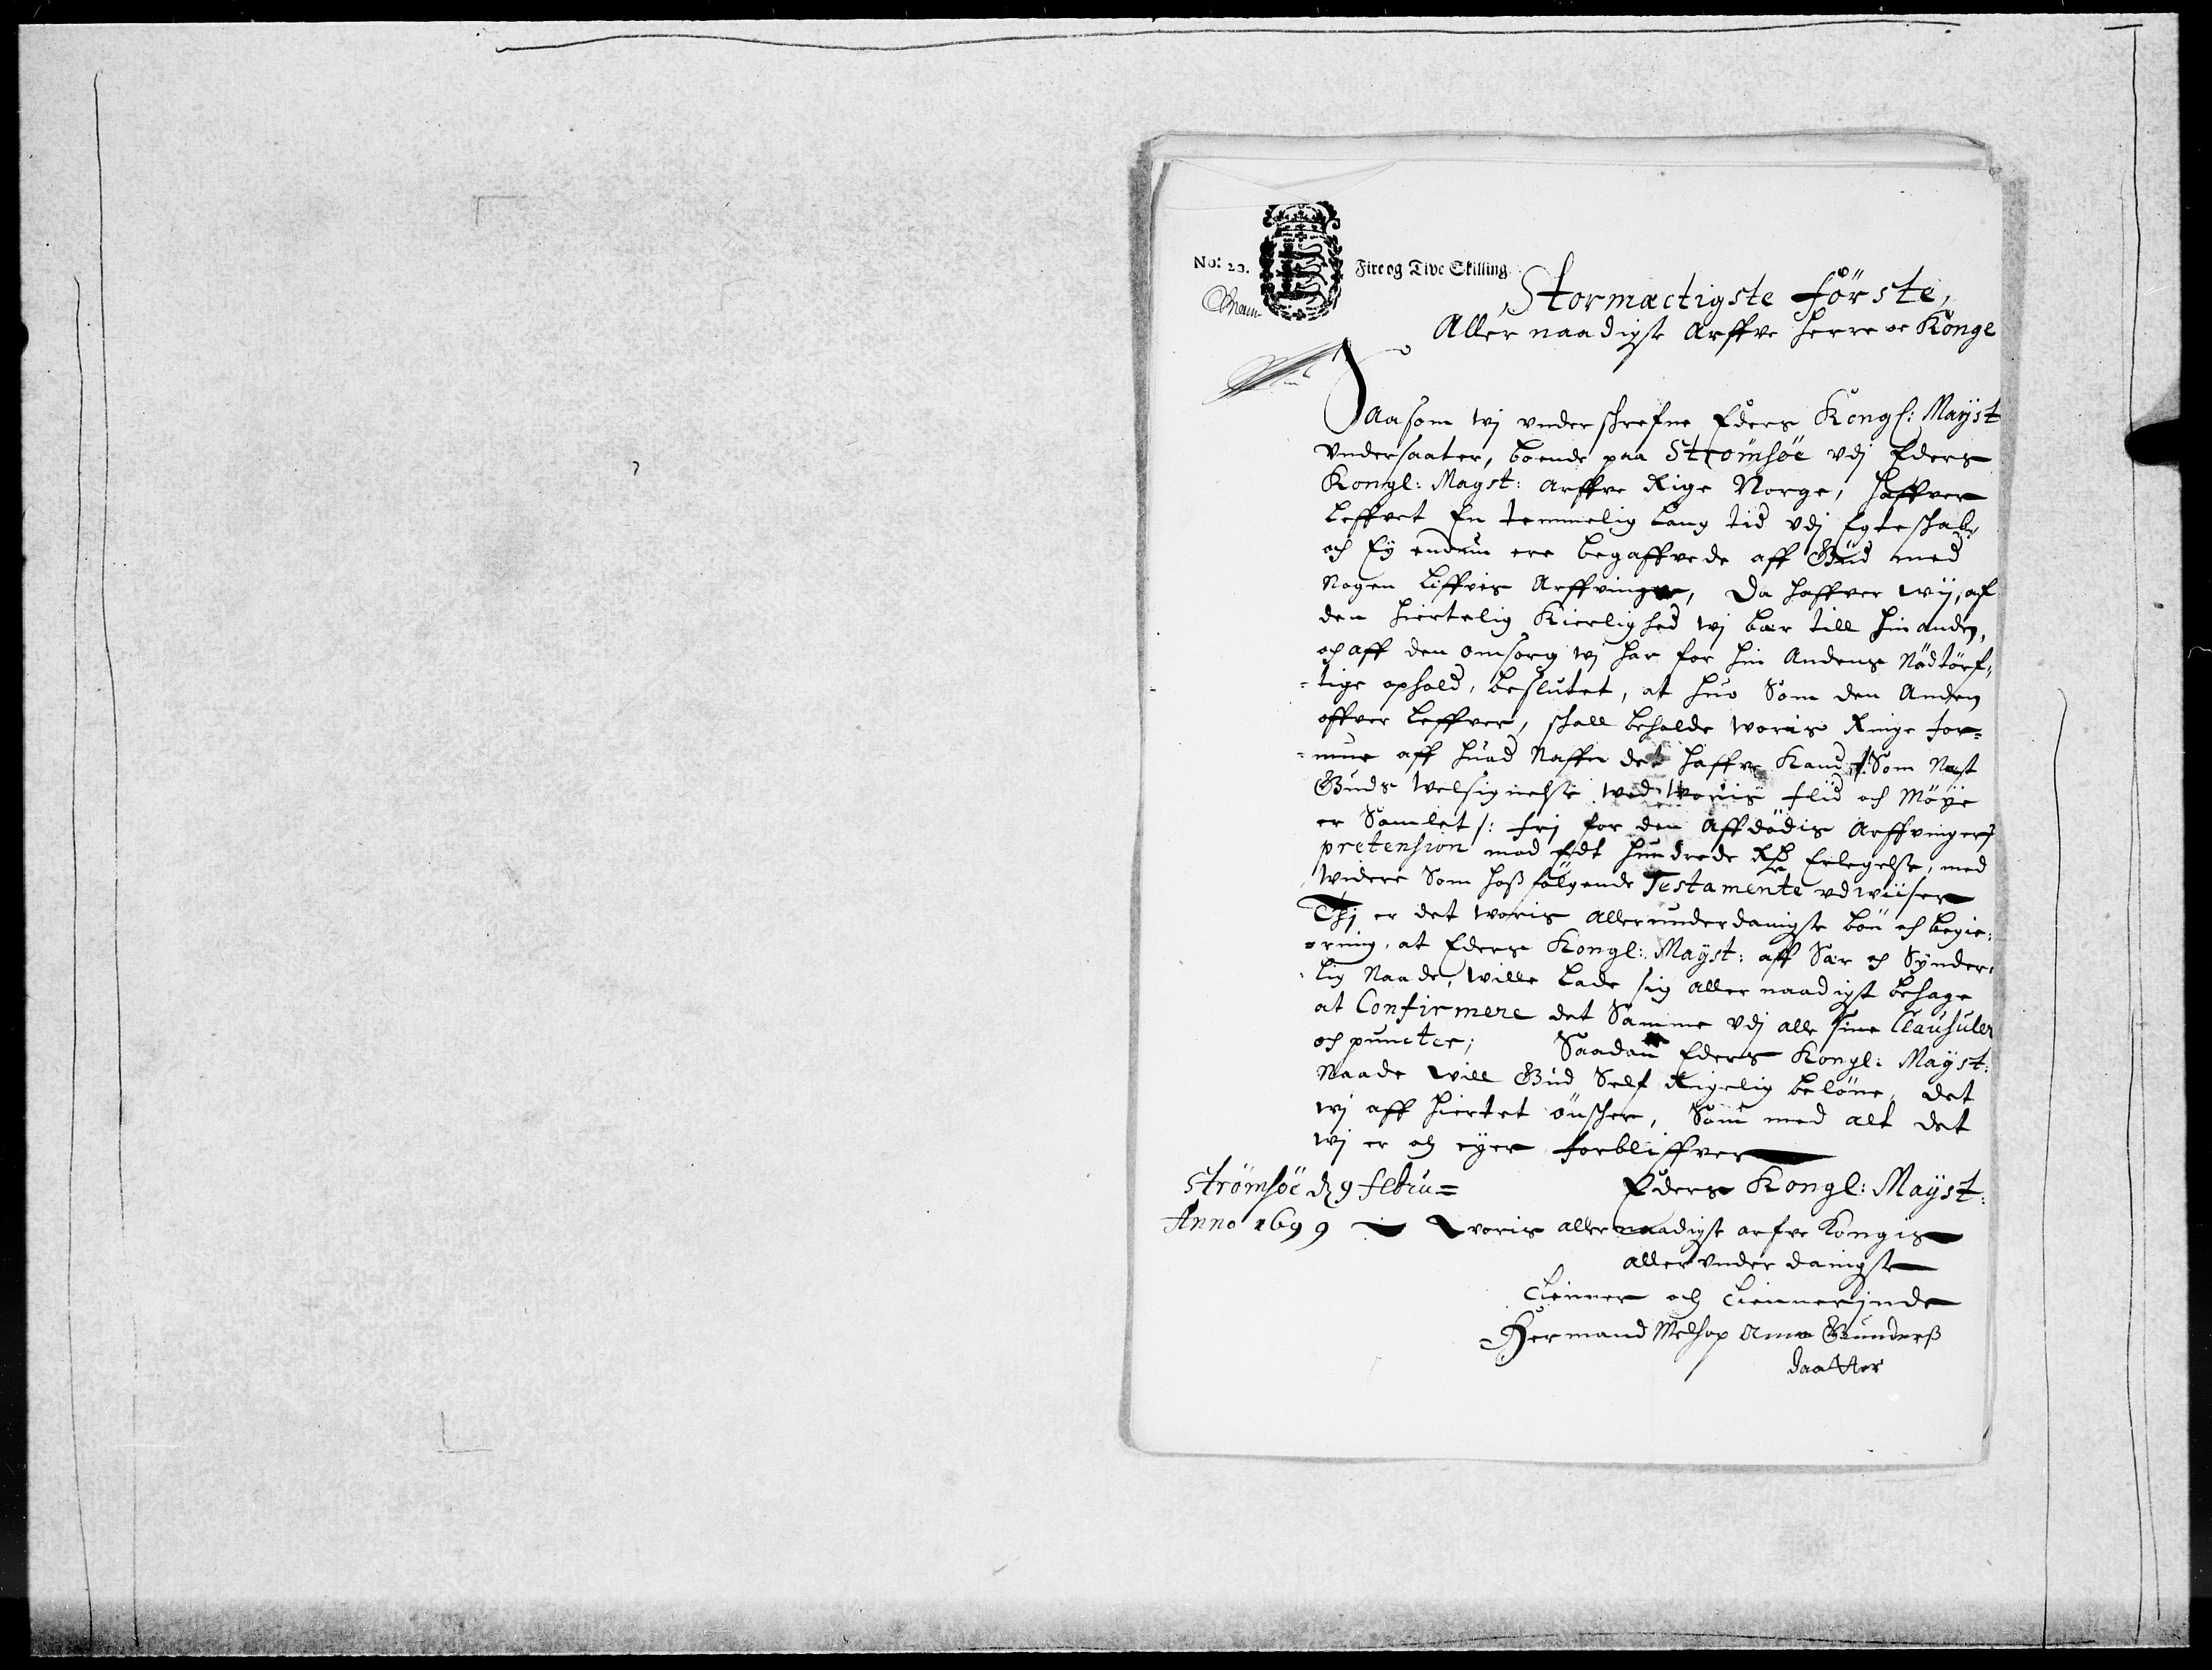 No: 23.
Fire og Tive Skilling
Stormæctigste förste,
Aller naadigste Arffve Herre oc Konge
Aasom wj underschrefne Eders Kongl: Mayst
Undersaater, boende paa Strömsöe udj Eders
Kongl: Mayst: Arffve Rige Norge, haffver
Leffvet En temmelig lang tid udj Egteschab,
och Ey endnu ere begaffvede aff Gud med
Nogen Liffvis Arffvinger, Da haffver wij, af
den hiertelig Kierlighed wj bær till hinanden,
och aff den omsorg wj har for hin Andens Nödtörf,
=tige ophold, beslutet, at huo Som den Anden
offver leffver, schall beholde woris Ringe for=
=mue aff huad Naffn det haffve Kand, /:Som Nest
Guds Welsignelse wed woris flid och Möye
er Samlet /: frj for den Affdödis Arffvingers
pretension mod Et hundrede Rd Erlegelse, med
widere Som hoßfölgende Testamente udwiiser
Thj er det woris allerunderdanigste bön och begie=
=ring, at Eders Kongl: Mayst: aff Sær och Synder=
lig Naade, wille lade sig allernaadigst behage
at Confirmere det Samme Udj alle sine Clausuler
och puncter; Saadan Eders Kongl: Mayst:
Naade will Gud Self Rigelig belöne, det
wj aff hiertet önscher, Som med alt det
wj er och eyer forbliffver
Strömsöe d 9 febru=
Eders Kongl: Mayst:
Anno 1699
woris aller naadigste arfve Kongis
allerunder danigste
Tienner och Tiennerinde
Hermand Melhop Anna Gunderß
daatter